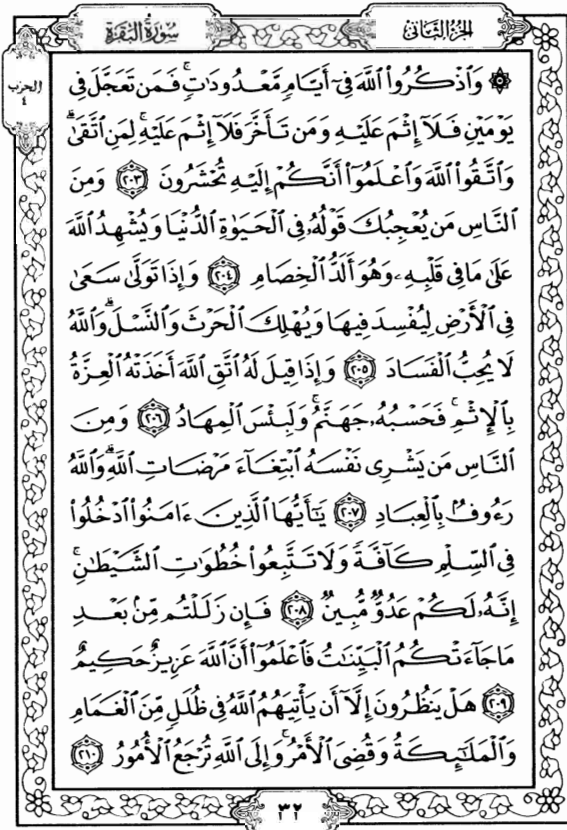 الجزء الثاني
سورة البقرة
الحزب
٤
۞ وَاذْكُرُوا اللَّهَ فِي أَيَّامٍ مَّعْدُودَاتٍ ۚ فَمَن تَعَجَّلَ فِي
يَوْمَيْنِ فَلَا إِثْمَ عَلَيْهِ وَمَن تَأَخَّرَ فَلَا إِثْمَ عَلَيْهِ ۚ لِمَنِ اتَّقَىٰ ۗ
وَاتَّقُوا اللَّهَ وَاعْلَمُوا أَنَّكُمْ إِلَيْهِ تُحْشَرُونَ ٢٠٣ وَمِنَ
النَّاسِ مَن يُعْجِبُكَ قَوْلُهُ فِي الْحَيَوٰةِ الدُّنْيَا وَيُشْهِدُ اللَّهَ
عَلَىٰ مَا فِي قَلْبِهِ وَهُوَ أَلَدُّ الْخِصَامِ ٢٠٤ وَإِذَا تَوَلَّىٰ سَعَىٰ
فِي الْأَرْضِ لِيُفْسِدَ فِيهَا وَيُهْلِكَ الْحَرْثَ وَالنَّسْلَ ۗ وَاللَّهُ
لَا يُحِبُّ الْفَسَادَ ٢٠٥ وَإِذَا قِيلَ لَهُ اتَّقِ اللَّهَ أَخَذَتْهُ الْعِزَّةُ
بِالْإِثْمِ ۚ فَحَسْبُهُ جَهَنَّمُ ۚ وَلَبِئْسَ الْمِهَادُ ٢٠٦ وَمِنَ
النَّاسِ مَن يَشْرِي نَفْسَهُ ابْتِغَاءَ مَرْضَاتِ اللَّهِ ۗ وَاللَّهُ
رَءُوفٌ بِالْعِبَادِ ٢٠٧ يَٰأَيُّهَا الَّذِينَ ءَامَنُوا ادْخُلُوا
فِي السِّلْمِ كَافَّةً وَلَا تَتَّبِعُوا خُطُوَٰتِ الشَّيْطَٰنِ ۚ
إِنَّهُ لَكُمْ عَدُوٌّ مُّبِينٌ ٢٠٨ فَإِن زَلَلْتُم مِّن بَعْدِ
مَا جَاءَتْكُمُ الْبَيِّنَٰتُ فَاعْلَمُوا أَنَّ اللَّهَ عَزِيزٌ حَكِيمٌ
٢٠٩ هَلْ يَنظُرُونَ إِلَّا أَن يَأْتِيَهُمُ اللَّهُ فِي ظُلَلٍ مِّنَ الْغَمَامِ
وَالْمَلَٰئِكَةُ وَقُضِيَ الْأَمْرُ ۚ وَإِلَى اللَّهِ تُرْجَعُ الْأُمُورُ ٢١٠
٣٢